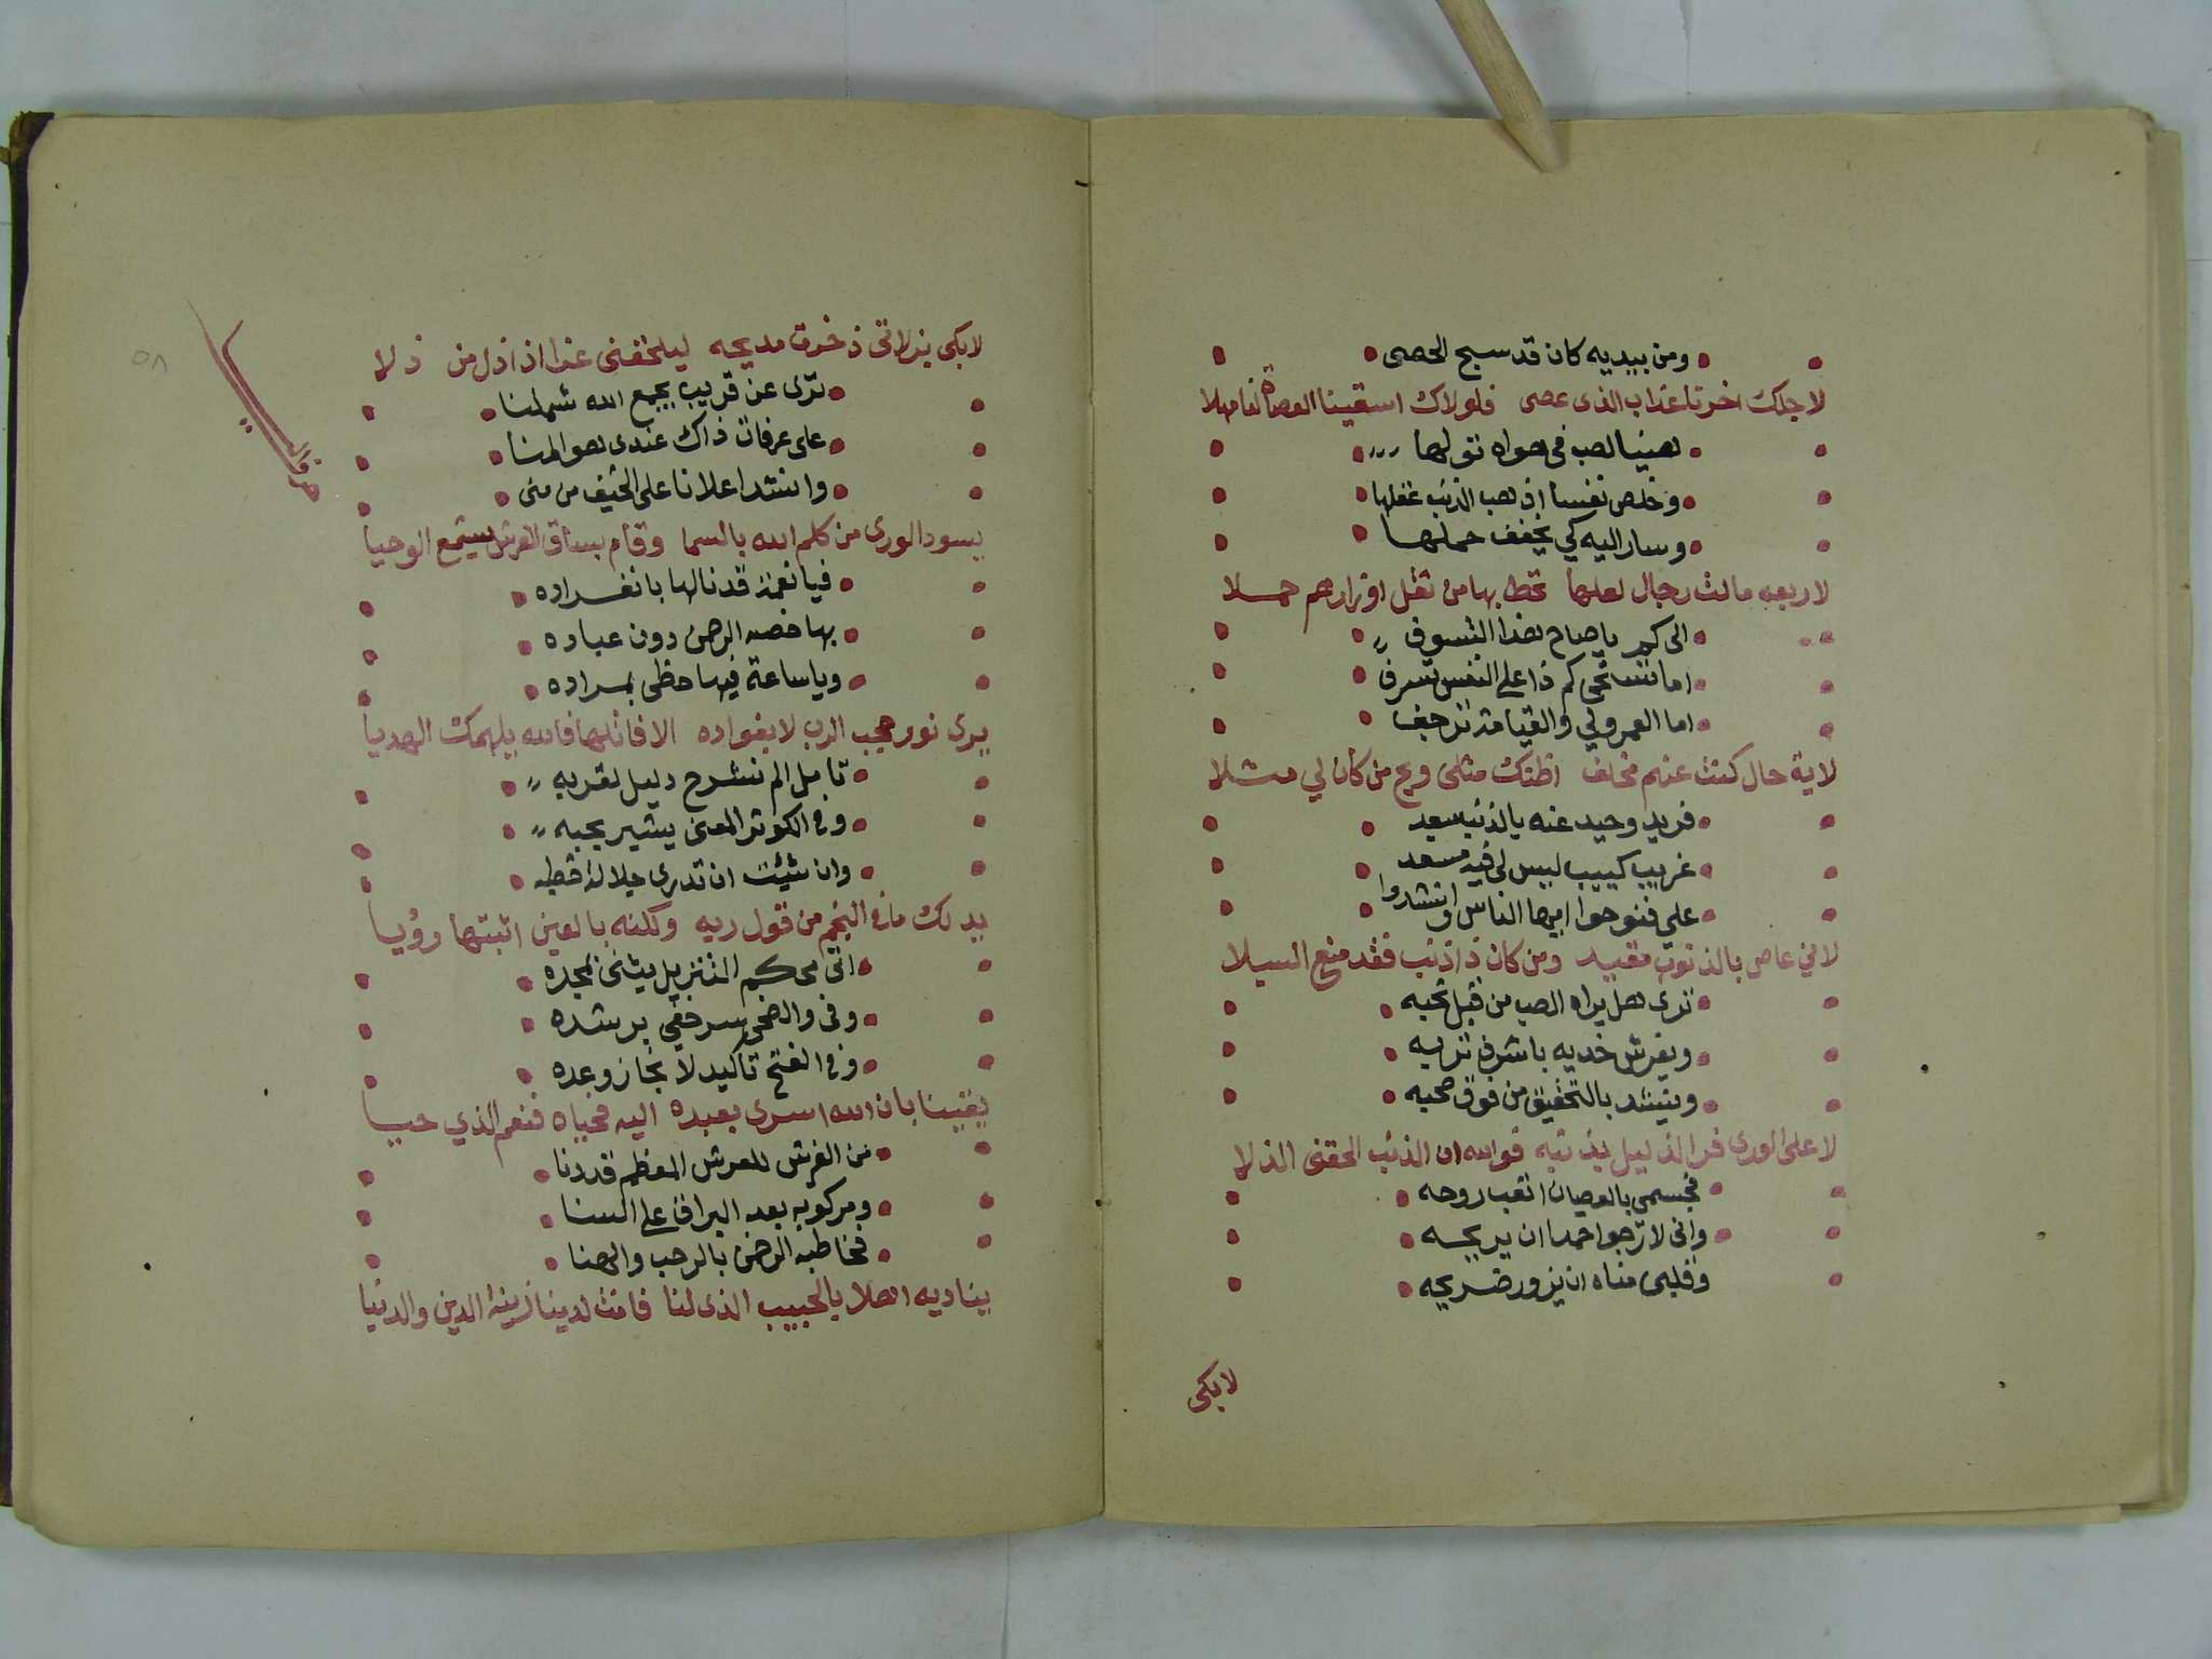 ومن بيديه كان قد سبح الحصى
لاجلك اخرنا عذاب الذى عصى فلولاك اسقينا العصاة لفا مهلا
هنيا لصب فى هواه تولها
وخلص نفسا اذهب الذنب عقلها
وسار اليه كي يخفف حملها
لاربعه مالت رجال لعلها تحط بها من ثقل اوزارهم حملا
الى كم ياصاح هذا التسوف
اما تستحى كم ذا على النفس تسرف
اما العمر ولي والقيامة تزحف
لاية حال كنت عنهم مخلف اظنك مثلى ويح من كان لي مثلا
فريد وحيد عنه بالذنب بعيد
غريب كييب ليس لى فيه مسعد
على فنوحوا ايها الناس وانشدوا
لاني عاص بالذنوب مقيد ومن كان ذا ذنب فقد منع السبلا
ترى هل يراه الصب من قبل نحبه
ويفرش خديه باشرف تربه
وينشد بالتحقيق من فوق صحبه
لاعلى الورى فر الذليل بذنبه فوالله ان الذنب الحقنى الذلا
فجسمى بالعصيان اتعب روحه
وانى لارجوا احمدا ان يريحه
وقلبى مناه ان يزور ضريحه
لابكى
لابكى بزلاتى ذخرت مديحه ليلحقنى غدا اذا ذل من ذلا
حرف اليا
٥٨
ترى عن قريب يجمع الله شملنا
على عرفات ذاك عندى هو المنا
وانشد اعلانا على الخيف من منى
يسود الورى من كلم الله بالسما وقام بساق العرش يستمع الوحيا
فيا نعمة قد نالها بانفراده
بها خصه الرحمن دون عباده
وياساعة فيها حظى بمراده
يرى نور حجب الرب لا بفواده الا فانلها فالله يلهمك الهديا
تامل الم نشرح دليل لقربه
وفى الكوثر المعنى يشير بحبه
وان شئت ان تدرى جلالة قطبه
يدلك مافى النجم من قول ربه ولكنه بالعين اثبتها رؤيا
اتى محكم التنزيل يثنى بمجده
وفى والضحى سر خفي برشده
وفى الفتح تاكيد لانجاز وعده
يقينا بان الله اسرى بعبده اليه فحياه فنعم الذي حيا
من الفرش للعرش المعظم قد دنا
ومركوبه بعد البراق على السنا
فخاطبه الرحمن بالرحب والهنا
يناديه اهلا بالحبيب الذى لنا فانت لدينا زينة الدين والدنيا